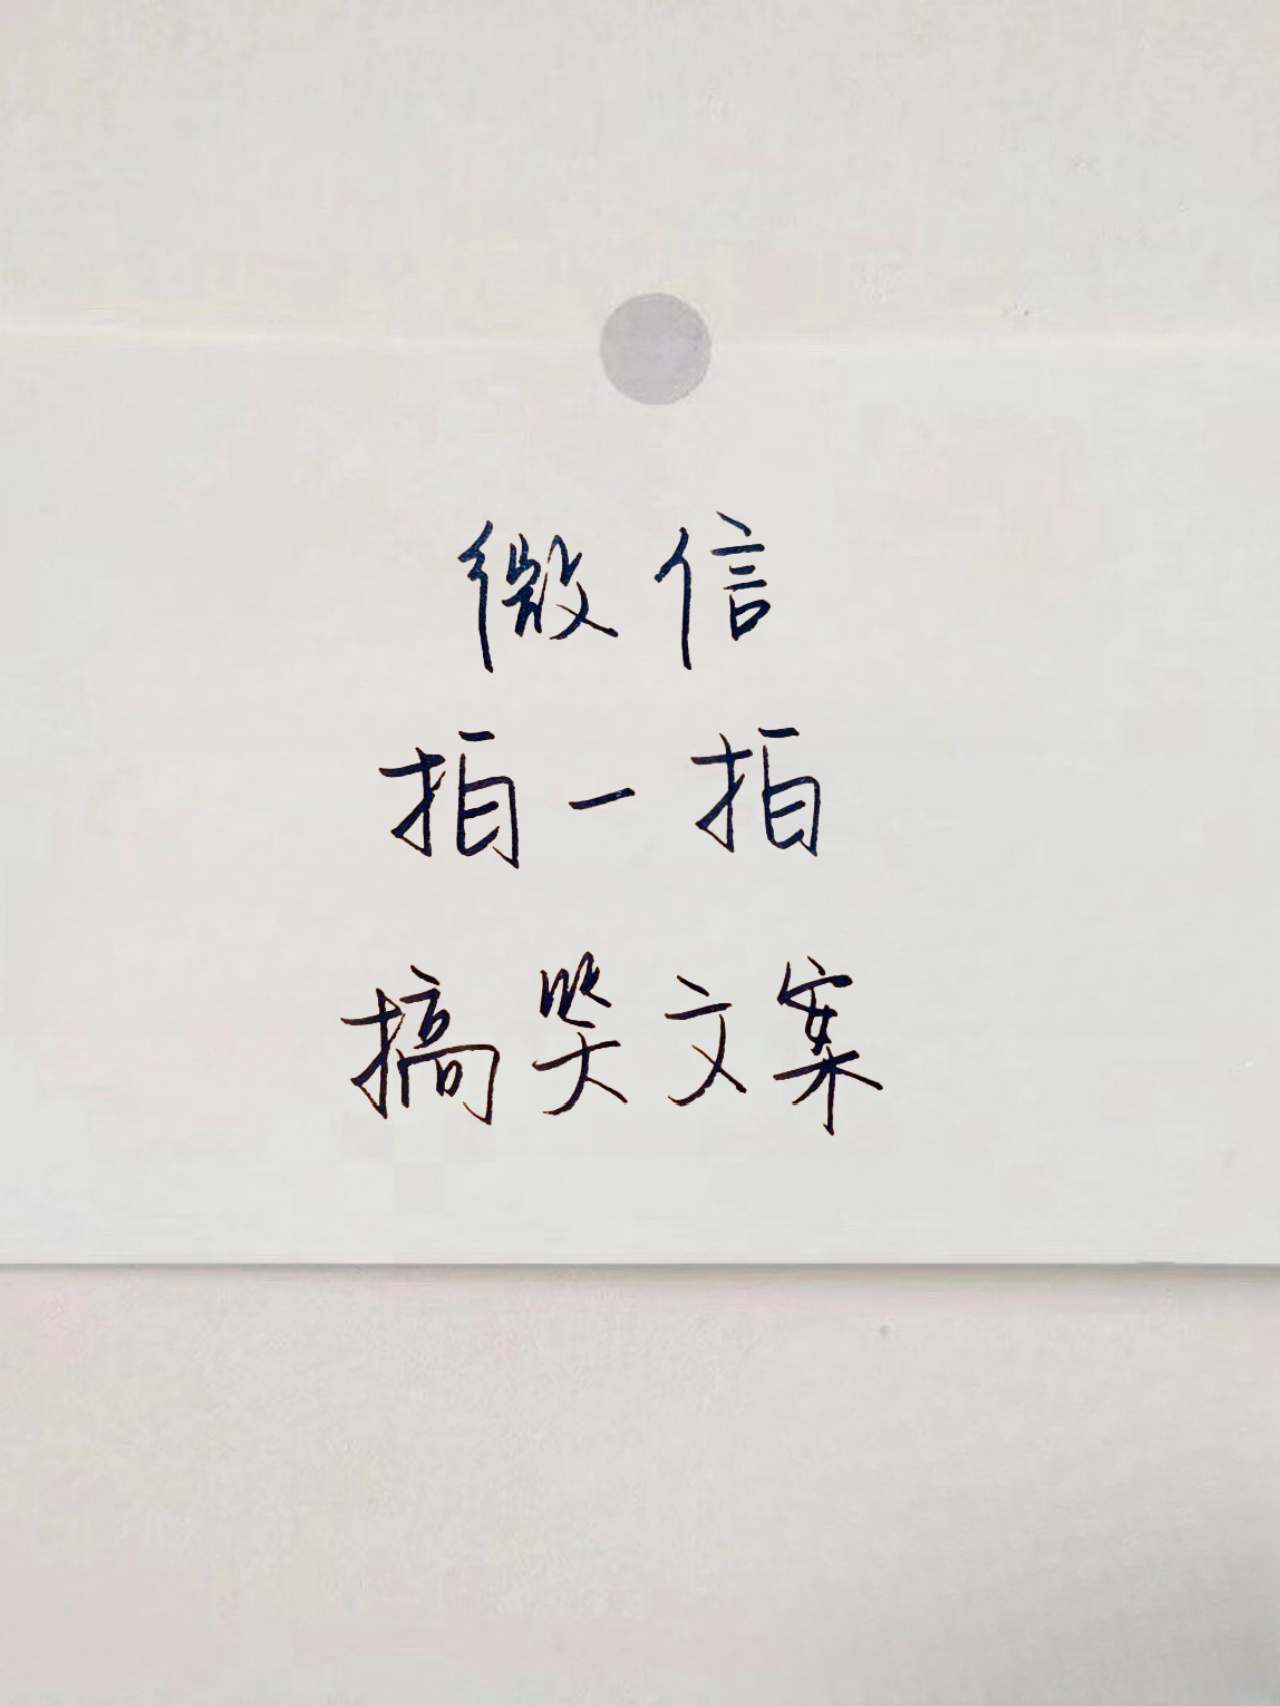 微信
拍一拍
搞哭文案